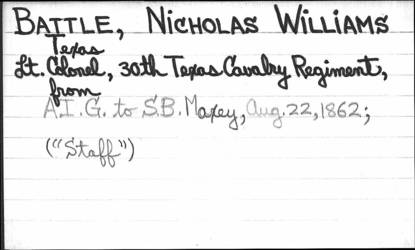 BATTLE, NICHOLAS WILLIAMS
Texas
Lt. Colonel, 30th Texas Cavalry Regiment,
from
A.I.G. to S.B. Maxey, Aug. 22, 1862;
("Staff")